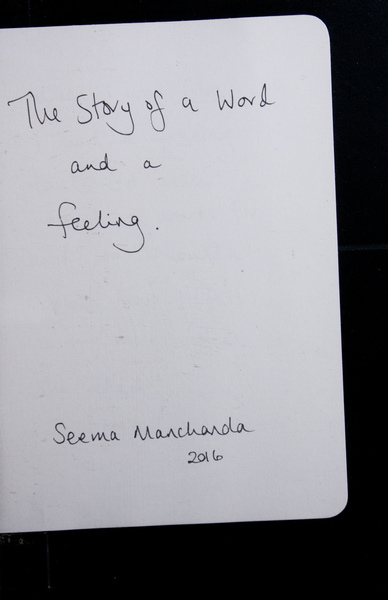 The Story of a Word
and a
feeling.
Seema Manchanda
2016